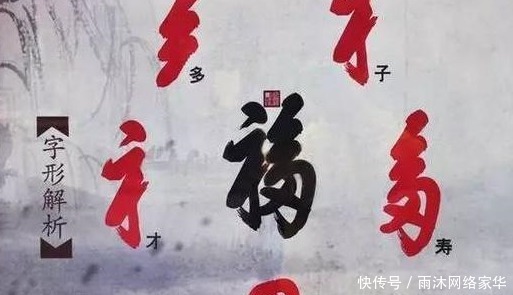 多
子
【字形解析】
福
才
寿
快传号 / 雨沐网络家华